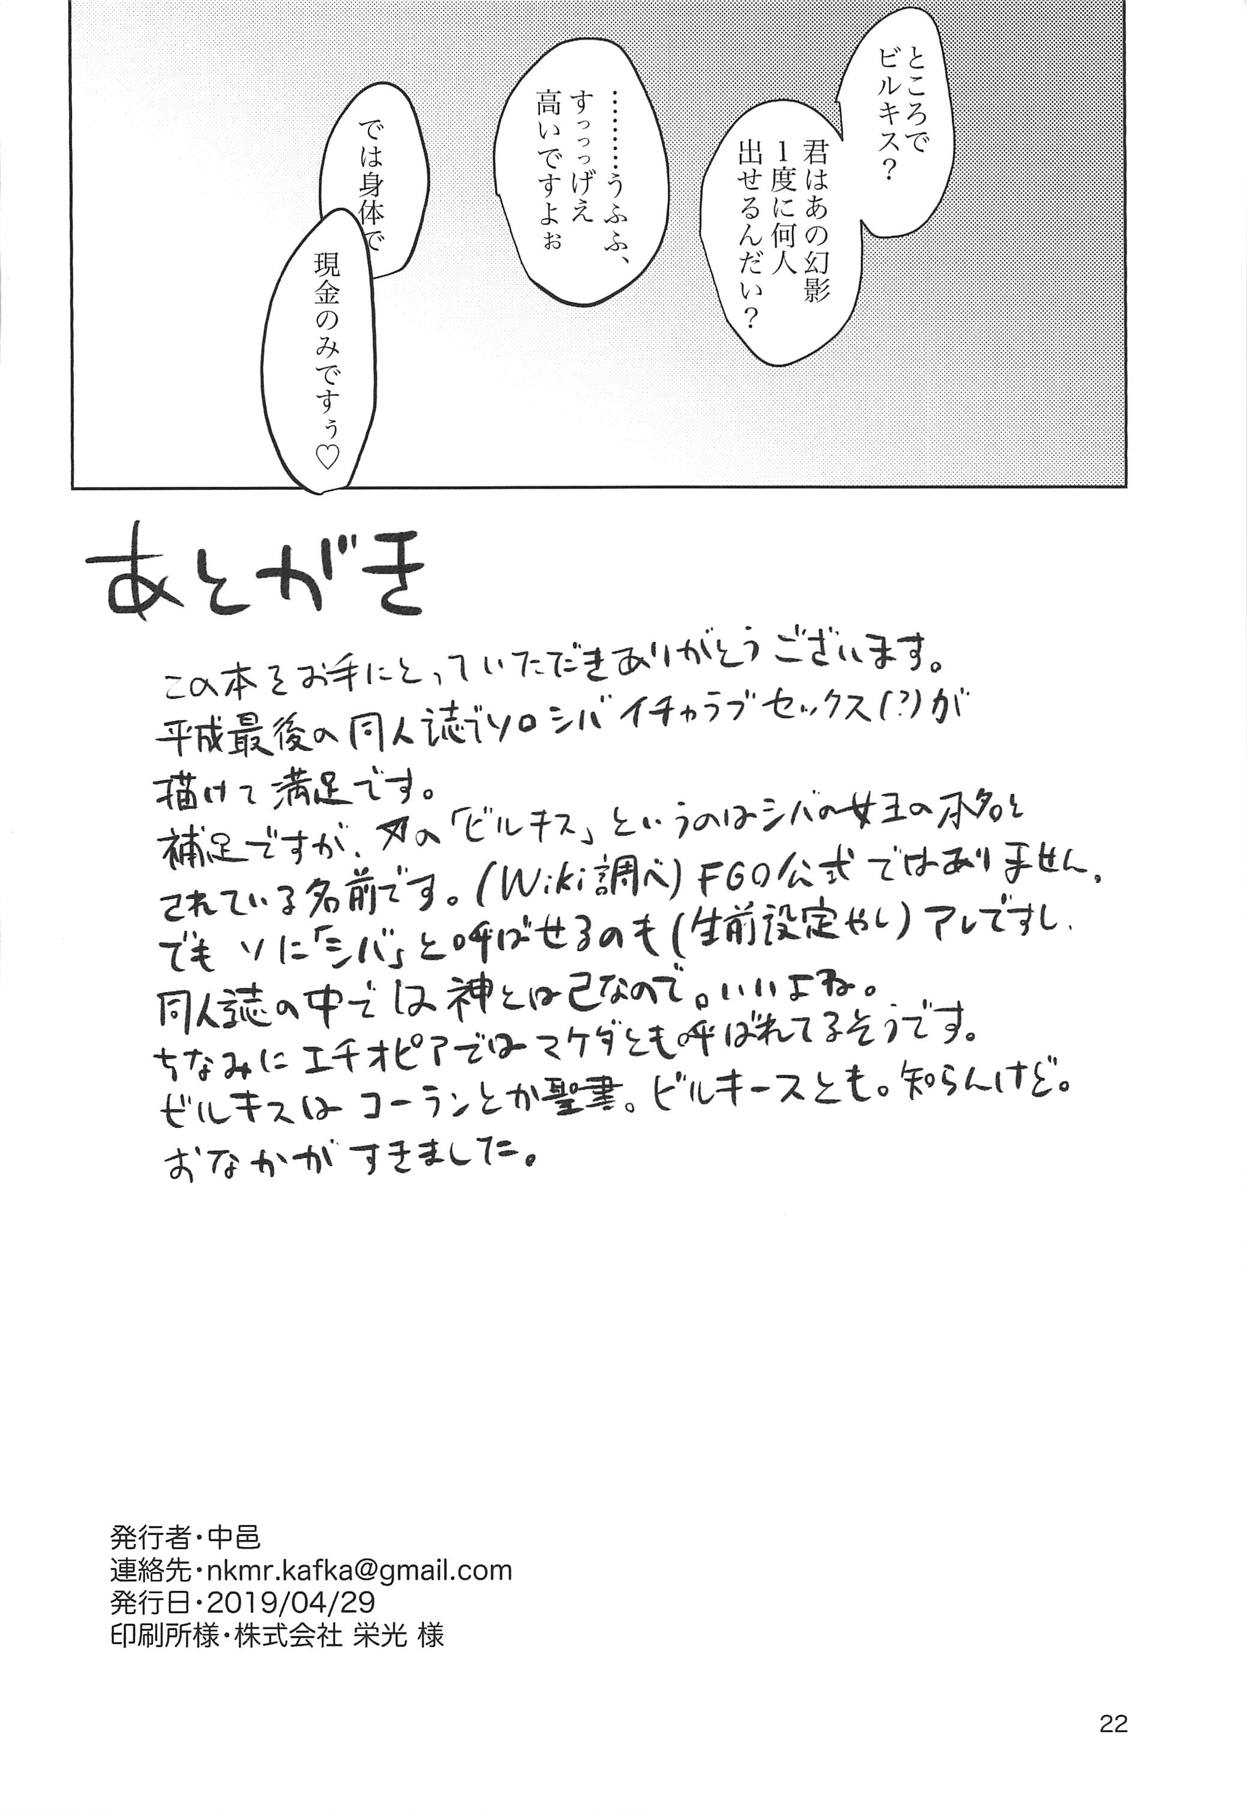 ところで
ビルキス?
君はあの幻影
1度に何人
出せるんだい?
………うふふ、
すっっっげえ
高いですよぉ
では身体で
現金のみですぅ♡
あとがき
この本をお手にとっていただきありがとうございます。
平成最後の同人誌でソロシバイチャラブセックス(?)が
描けて満足です。
補足ですが、刃の「ビルキス」というのはシバの女王の本名と
されている名前です。(Wiki調べ)FGO公式ではありません。
でもソに「シバ」と呼ばせるのも(生前設定やし)アレですし、
同人誌の中では神とは己なので。いいよね。
ちなみにエチオピアではマケダとも呼ばれてるそうです。
ビルキスはコーランとか聖書。ビルキースとも。知らんけど。
おなかがすきました。
発行者・中邑
連絡先・nkmr.kafka@gmail.com
発行日・2019/04/29
印刷所様・株式会社 栄光 様
22